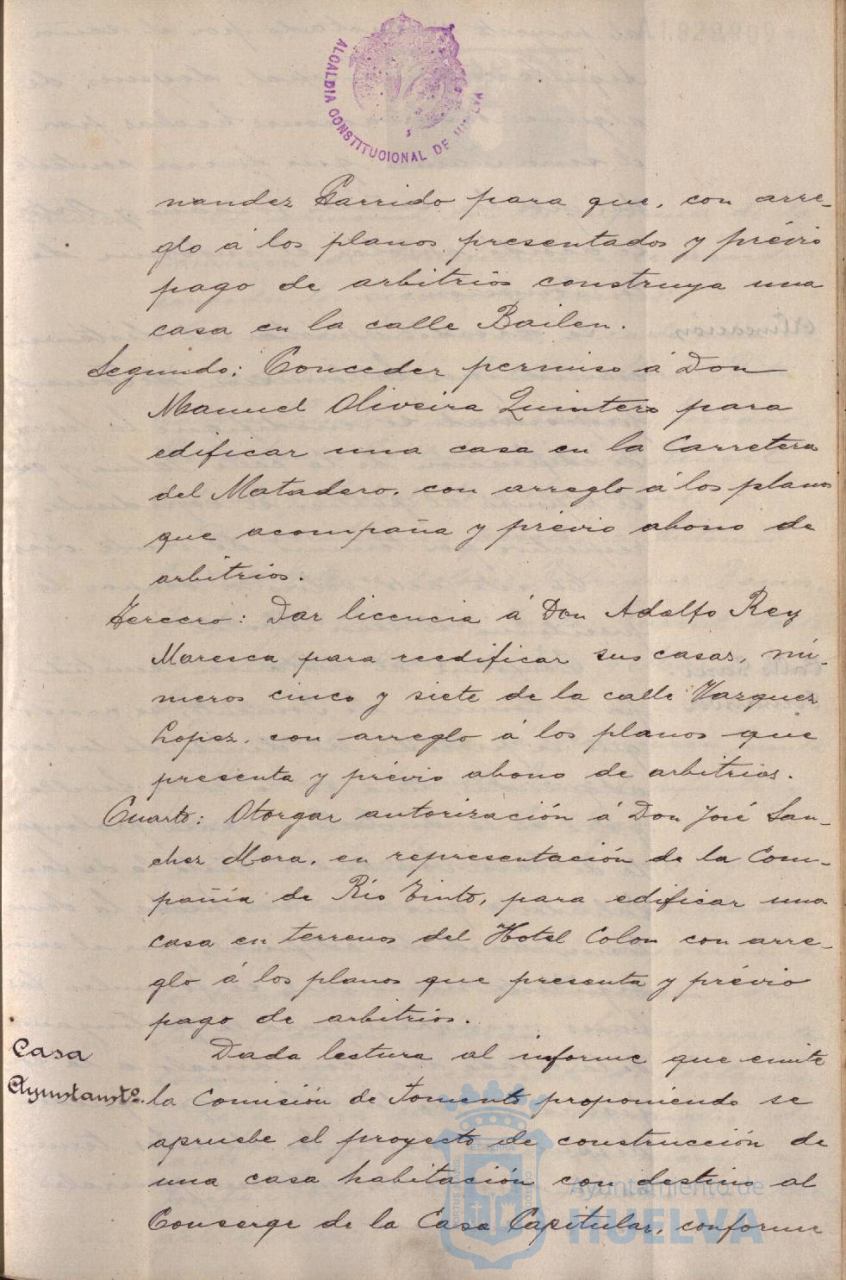 ALCALDIA CONSTITUCIONAL DE HUELVA
nandez Garrido para que, con arre-
glo á los planos presentados y prévio
pago de arbitrios construya una
casa en la calle Bailen.
Segundo: Conceder permiso á Don
Manuel Oliveira Quintero para
edificar una casa en la Carretera
del Matadero, con arreglo á los planos
que acompaña y prévio abono de
arbitrios.
Tercero: Dar licencia á Don Adolfo Rey
Maresca para reedificar sus casas, nú-
meros cinco y siete de la calle Vazquez
Lopez, con arreglo á los planos que
presenta y prévio abono de arbitrios.
Cuarto: Otorgar autorización á Don José San-
chez Mora, en representación de la Com-
pañía de Rio Tinto, para edificar una
casa en terrenos del Hotel Colon con arre-
glo á los planos que presenta y prévio
pago de arbitrios.
Casa
Ayuntamtº.
Dada lectura al informe que emite
la Comisión de Fomento proponiendo se
apruebe el proyecto de construcción de
una casa habitación con destino al
Conserge de la Casa Capitular, conforme
Ayuntamiento de
HUELVA